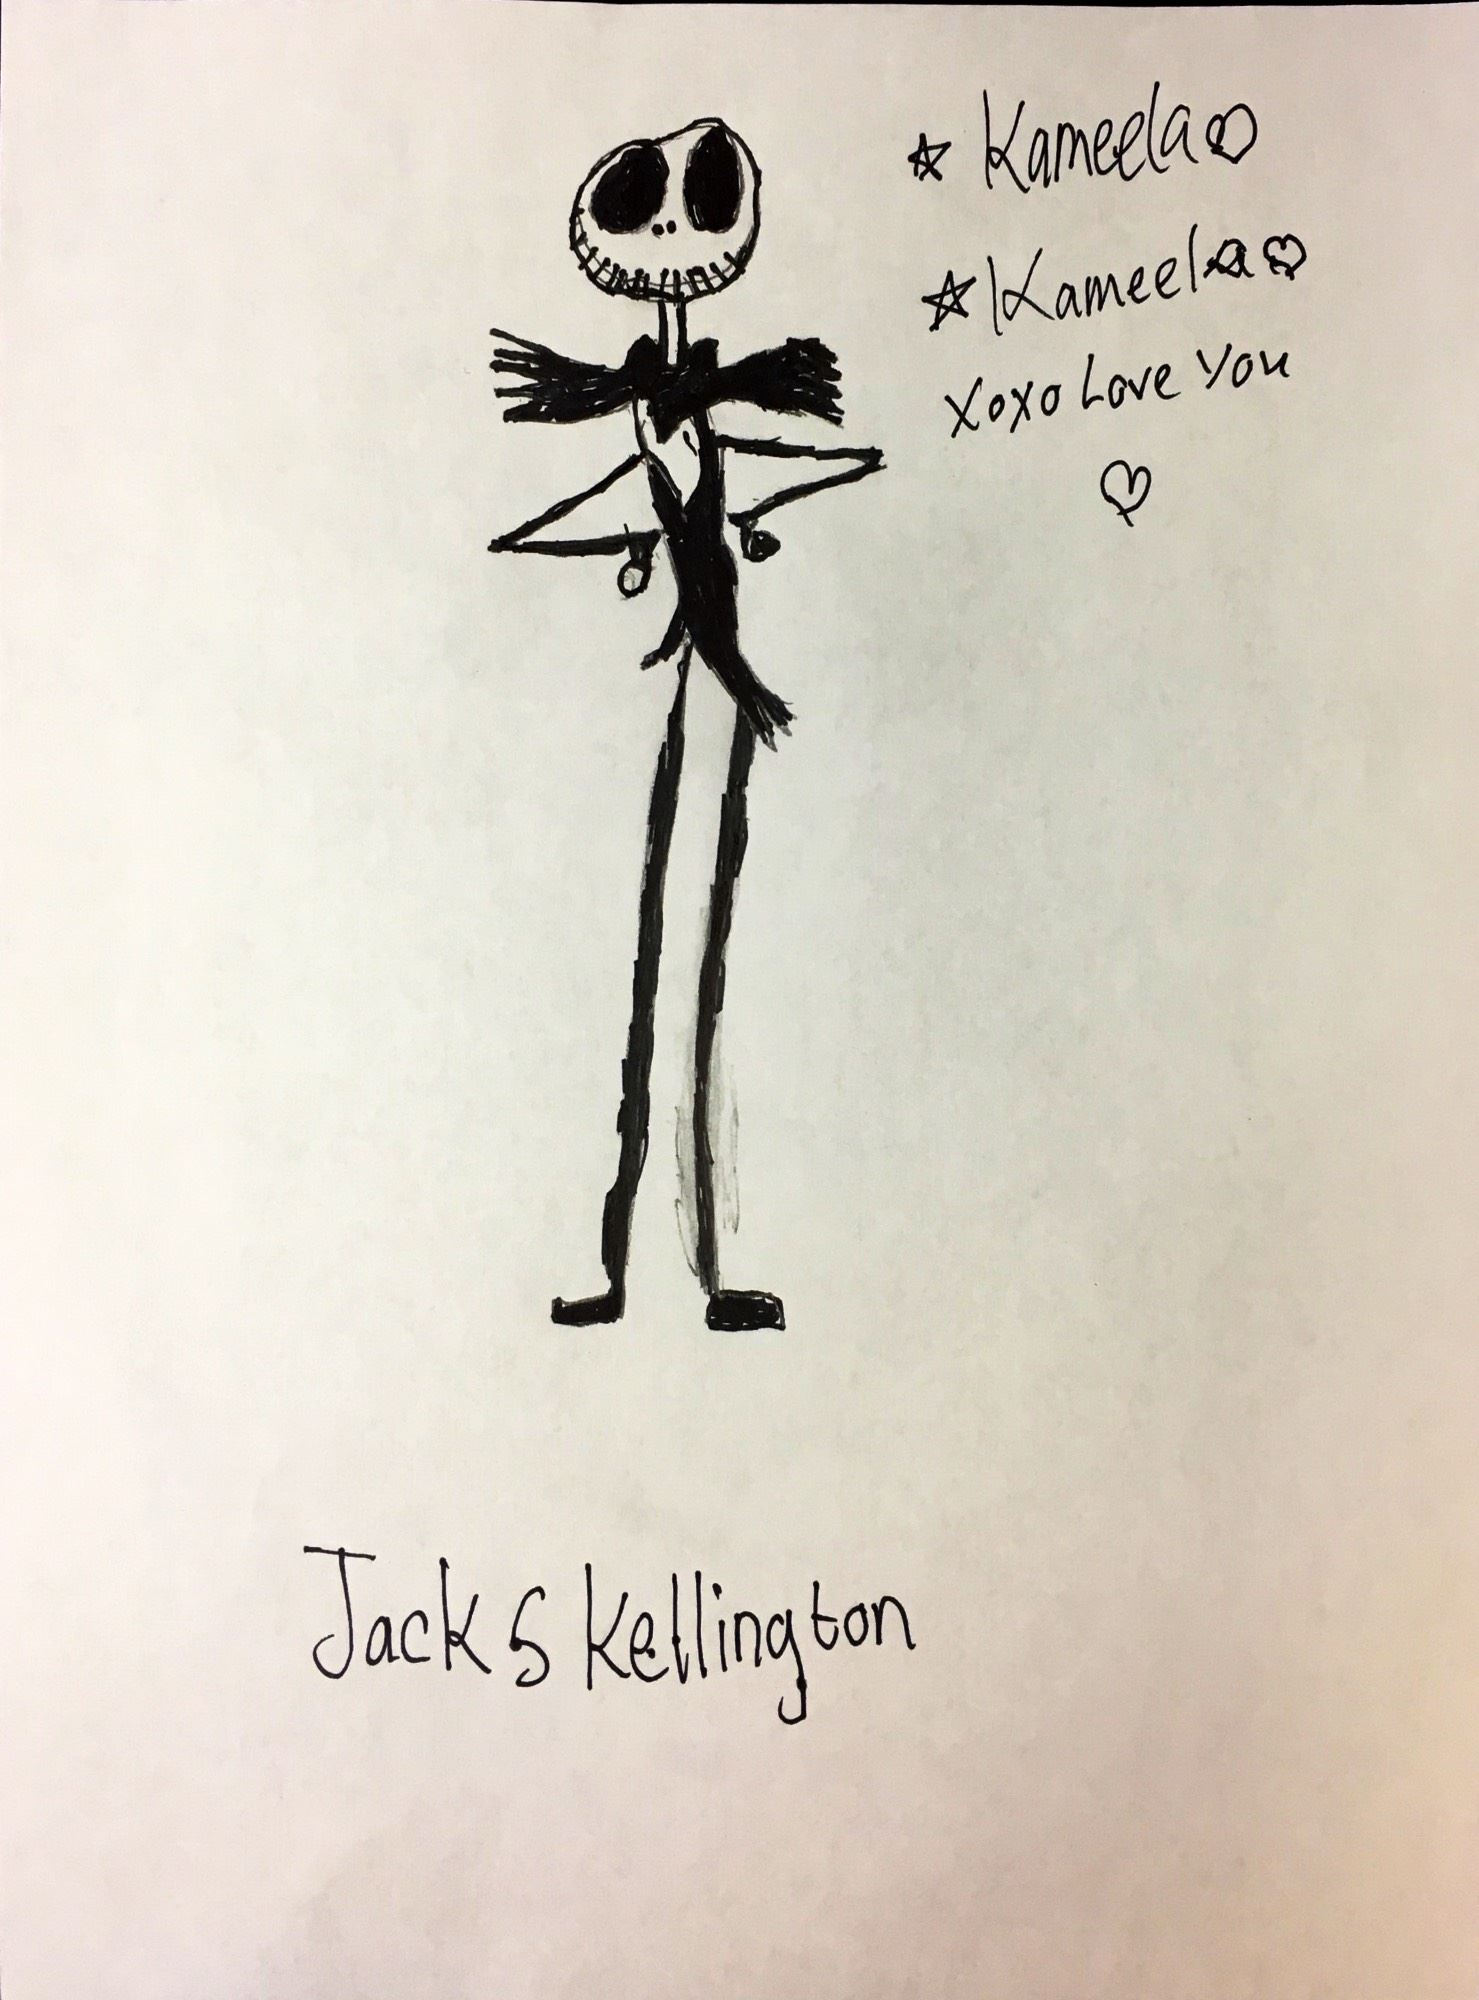 Kameela
Kameela
XoXo Love You
Jack Skellington